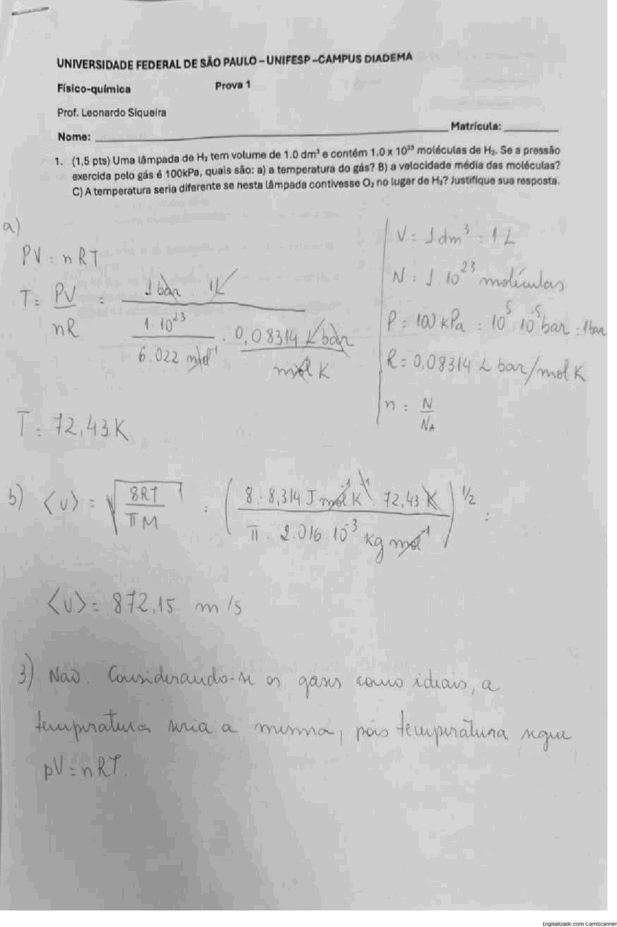 UNIVERSIDADE FEDERAL DE SÃO PAULO – UNIFESP –CAMPUS DIADEMA
Físico-química Prova 1
Prof. Leonardo Siqueira
Nome: Matrícula:
1. (1,5 pts) Uma lâmpada de H₂ tem volume de 1.0 dm³ e contém 1.0 x 10²³ moléculas de H₂. Se a pressão
exercida pelo gás é 100kPa, quais são: a) a temperatura do gás? B) a velocidade média das moléculas?
C) A temperatura seria diferente se nesta lâmpada contivesse O₂ no lugar de H₂? Justifique sua resposta.
a)
PV = nRT
T = PV / nR = 1 bar . 1L / (1 . 10²³ / 6.022 mol⁻¹ . 0,08314 L bar / mol K)
T = 72,43 K
V = 1 dm³ = 1 L
N = 1 10²³ moléculas
P = 100 kPa = 10⁵ 10⁻⁵ bar = 1 bar
R = 0,08314 L bar/mol K
n = N / N_A
b) <u> = √(8RT / πM) = (8 . 8,314 J mol⁻¹ K⁻¹ 72,43 K / π . 2.016 10⁻³ kg mol⁻¹)^1/2 =
<u> = 872,15 m/s
3) Não. Considerando-se os gases como ideais, a
temperatura seria a mesma, pois temperatura segue
pV = nRT.
Digitalizado com CamScanner